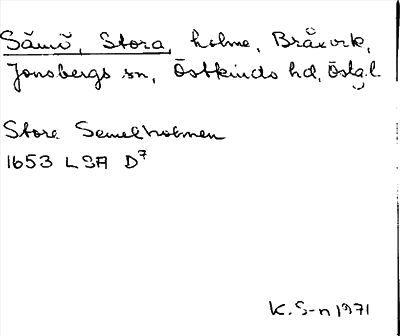 Sämö, Stora, holme, Bråvik,
Jonsbergs sn, Östkinds hd, Östg.l.
Store Semelholmen
1653 LSA D7
K.S-n 1971